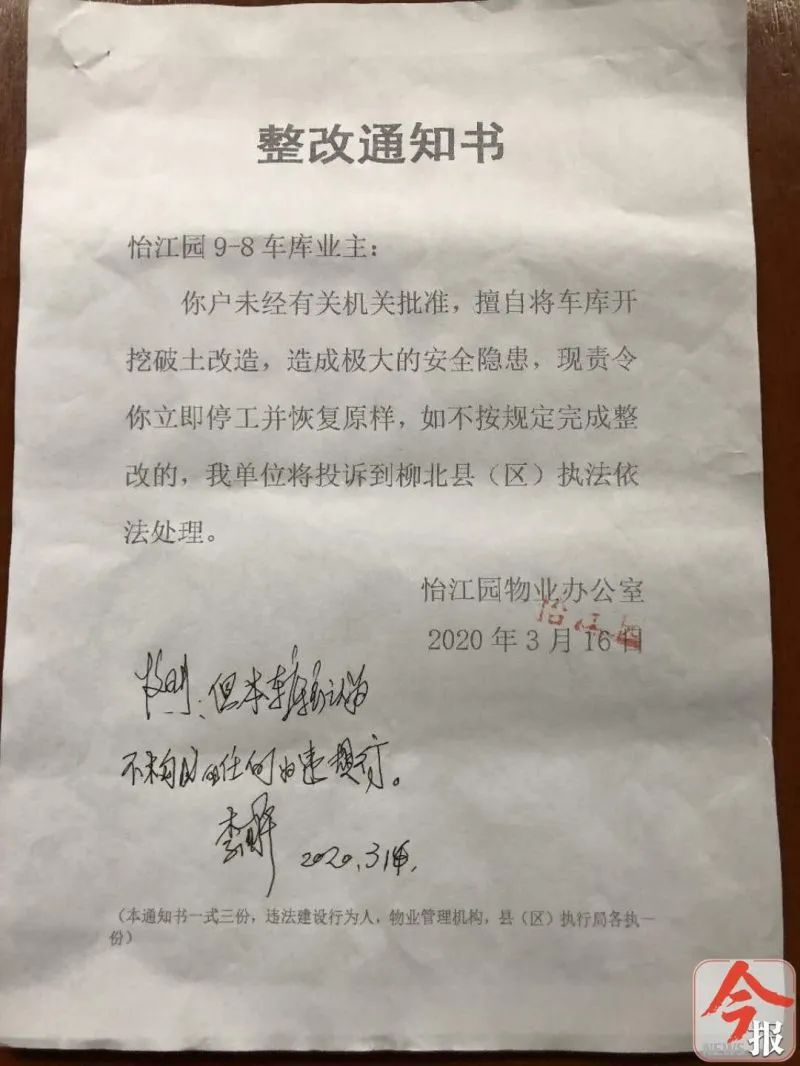 整改通知书
怡江园9-8车库业主：
你户未经有关机关批准，擅自将车库开
挖破土改造，造成极大的安全隐患，现责令
你立即停工并恢复原样，如不按规定完成整
改的，我单位将投诉到柳北县（区）执法依
法处理。
怡江园物业办公室
怡江园
2020年3月16日
但本车库认为
不任何违规行
李 2020.3
（本通知书一式三份，违法建设行为人，物业管理机构，县（区）执行局各执一
份）
今报
NEWS